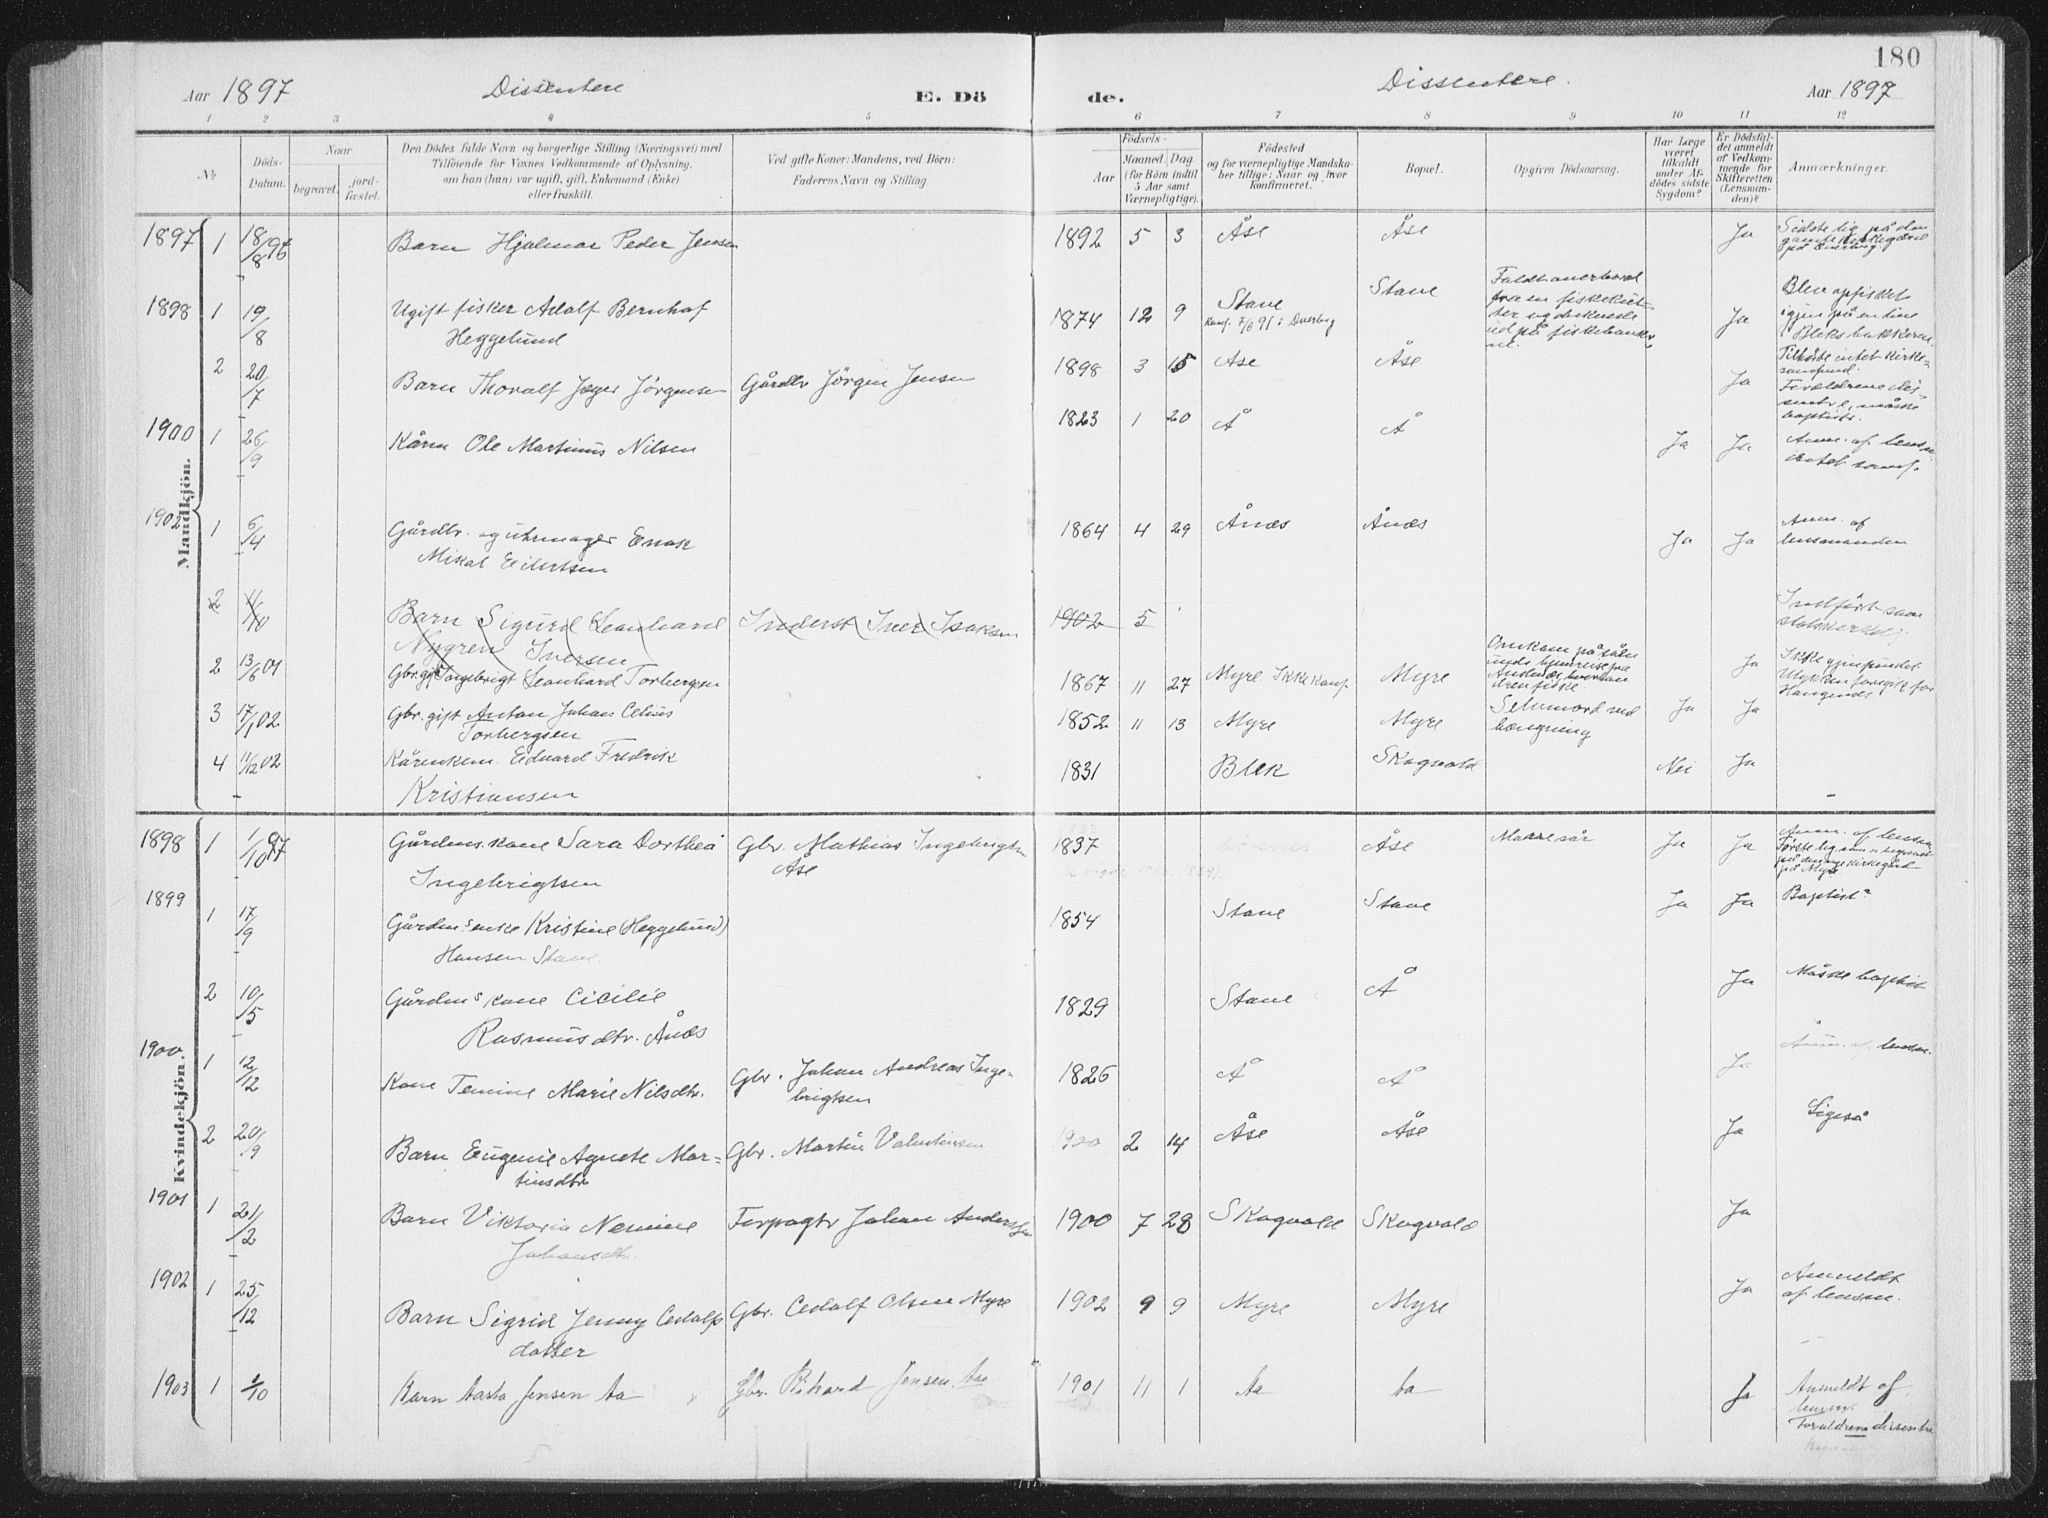 180
Aar 1897 Dissentere E. Dö de. Dissentere. Aar 1897
1 2 3 4 5 6 7 8 9 10 11 12
№
Döds-
Datum.
Naar
begravet.
jord-
fæstet.
Den Dödes fulde Navn og borgerlige Stilling (Næringsvei) med
Tilföiende for Voxnes Vedkommende af Oplysning,
om han (hun) var ugift, gift, Enkemand (Enke)
eller fraskilt.
Ved gifte Koner: Mandens, ved Börn:
Faderens Navn og Stilling.
Födsels-
Aar
Maaned
Dag
(for Börn indtil
5 Aar samt
Værnepligtige).
Födested
og for værnepligtige Mandska-
ber tillige: Naar og hvor
konfirmeret.
Bopæl.
Opgiven Dödsaarsag.
Har Læge
været
tilkaldt
under Af-
dödes sidste
Sygdom?
Er Dödsfal-
det anmeldt
af Vedkom-
mende for
Skifteretten
(Lensman-
den)?
Anmærkninger.
Mandkjön.
1897 1 18/8 96 Barn Hjalmar Peder Jensen 1892 5 3 Åse Åse Ja Sidste lig på den
gamle kirkegård
på
1898 1 19/8 Ugift fisker Adolf Bernhof
Heggelund
1874 12 9 Stave
Konf. 7/6 91 i Dverberg
Stave
Faldt overbord
fra en fiskekut-
ter og druknede
ud på fiskebanker-
ne.
Ja
Blev opfisket
igjen på en line
i Bleksbakkerne.
2 20/7 Barn Thoralf Jæger Jörgensen Gårdbr Jörgen Jensen 1898 3 15 Åse Åse Ja
Tilhörte intet kirke-
samfund.
Forældrene dis-
sentre, måske
baptister.
1900 1 26/9 Kårm Ole Martinus Nilsen 1823 1 20 Å Å Ja Ja
Anm. af lensm.
intet samf.
1902 1 6/4 Gårdbr. og uhrmager Enok
Mikal Eilertsen
1864 4 29 Ånes Ånes Ja Ja
Anm. af
lensmanden
2 11/10 Barn Sigurd Leonhard
Nygren Iversen
Inderst Iver Isaksen
1902 5
Indført som
2 13/6 01 Gbr. gift Ingebrigt Leonhard Torbergsen 1867 11 27 Myre Ikke konf. Myre
Omkom på søen
under hjemreise fra
Andenes
fiske
Ja
Ikke gjenfundet.
Ulykken foregik for
Haugenes
3 17/1 02 Gbr. gift Anton Johan Celius
Torbergsen
1852 11 13 Myre Myre
Selvmord ved
hængning
Ja Ja
4 11/12 02 Kårenkem. Edvard Fredrik
Kristiansen
1831 Blek Skogvold Nei Ja
Kvindekjön.
1898 1 1/10 97 Gårdms.kone Sara Dorthea
Ingebrigtsen
Gbr. Mathias Ingebrigtsen
Åse
1837 Åse Mavesår Ja Ja
Anm. af lensm.
Første lig som er begravet
på den nye kirkegård
på Myre
1899 1 17/9 Gårdms enke Kristine (Heggelund)
Hansen Stave
1854 Stave Stave Ja Ja Baptist?
2 10/5 Gårdms kone Cicilie
Rasmusdtr. Ånes
1829 Stave Å Ja Måske baptist
1900 1 12/12 Kone Temine Marie Nilsdtr. Gbr. Johan Andreas Inge-
brigtsen
1826 Å Å Ja Anm. af lensm.
2 20/9 Barn Eugenie Agnete Mar-
tinsdtr
Gbr. Martin Valentinsen 1900 2 14 Åse Åse Ja Ligeså
1901 1 21/2 Barn Viktoria Nermine
Johansdtr.
Forpagtr Johan Anderssen 1900 7 28 Skogvold Skogvold Ja
1902 1 25/12 Barn Sigrid Jenny Cedolfs
datter
Gbr. Cedolf Olsen Myre 1902 9 9 Myre Myre Ja
Anmeldt
af lensm.
1903 1 1/10 Barn Aasta Jensen Aa Gbr. Rikard Jensen Aa 1901 11 1 Aa Aa Ja
Anmeldt af
lensm.
Foraldrene dissentre